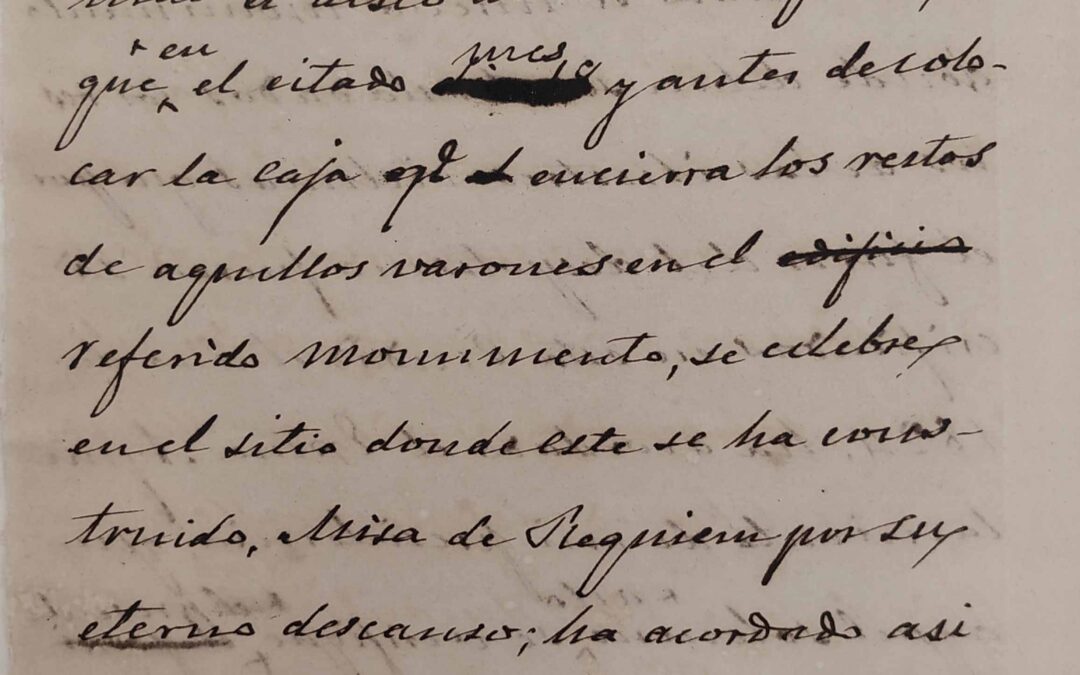 que en el citado y antes de colo-
car la caja qe encierra los restos
de aquellos varones en el edificio
referido monumento, se celebre
en el sitio donde este se ha cons-
truido, Misa de Requiem por su
eterno descanso; ha acordado asi